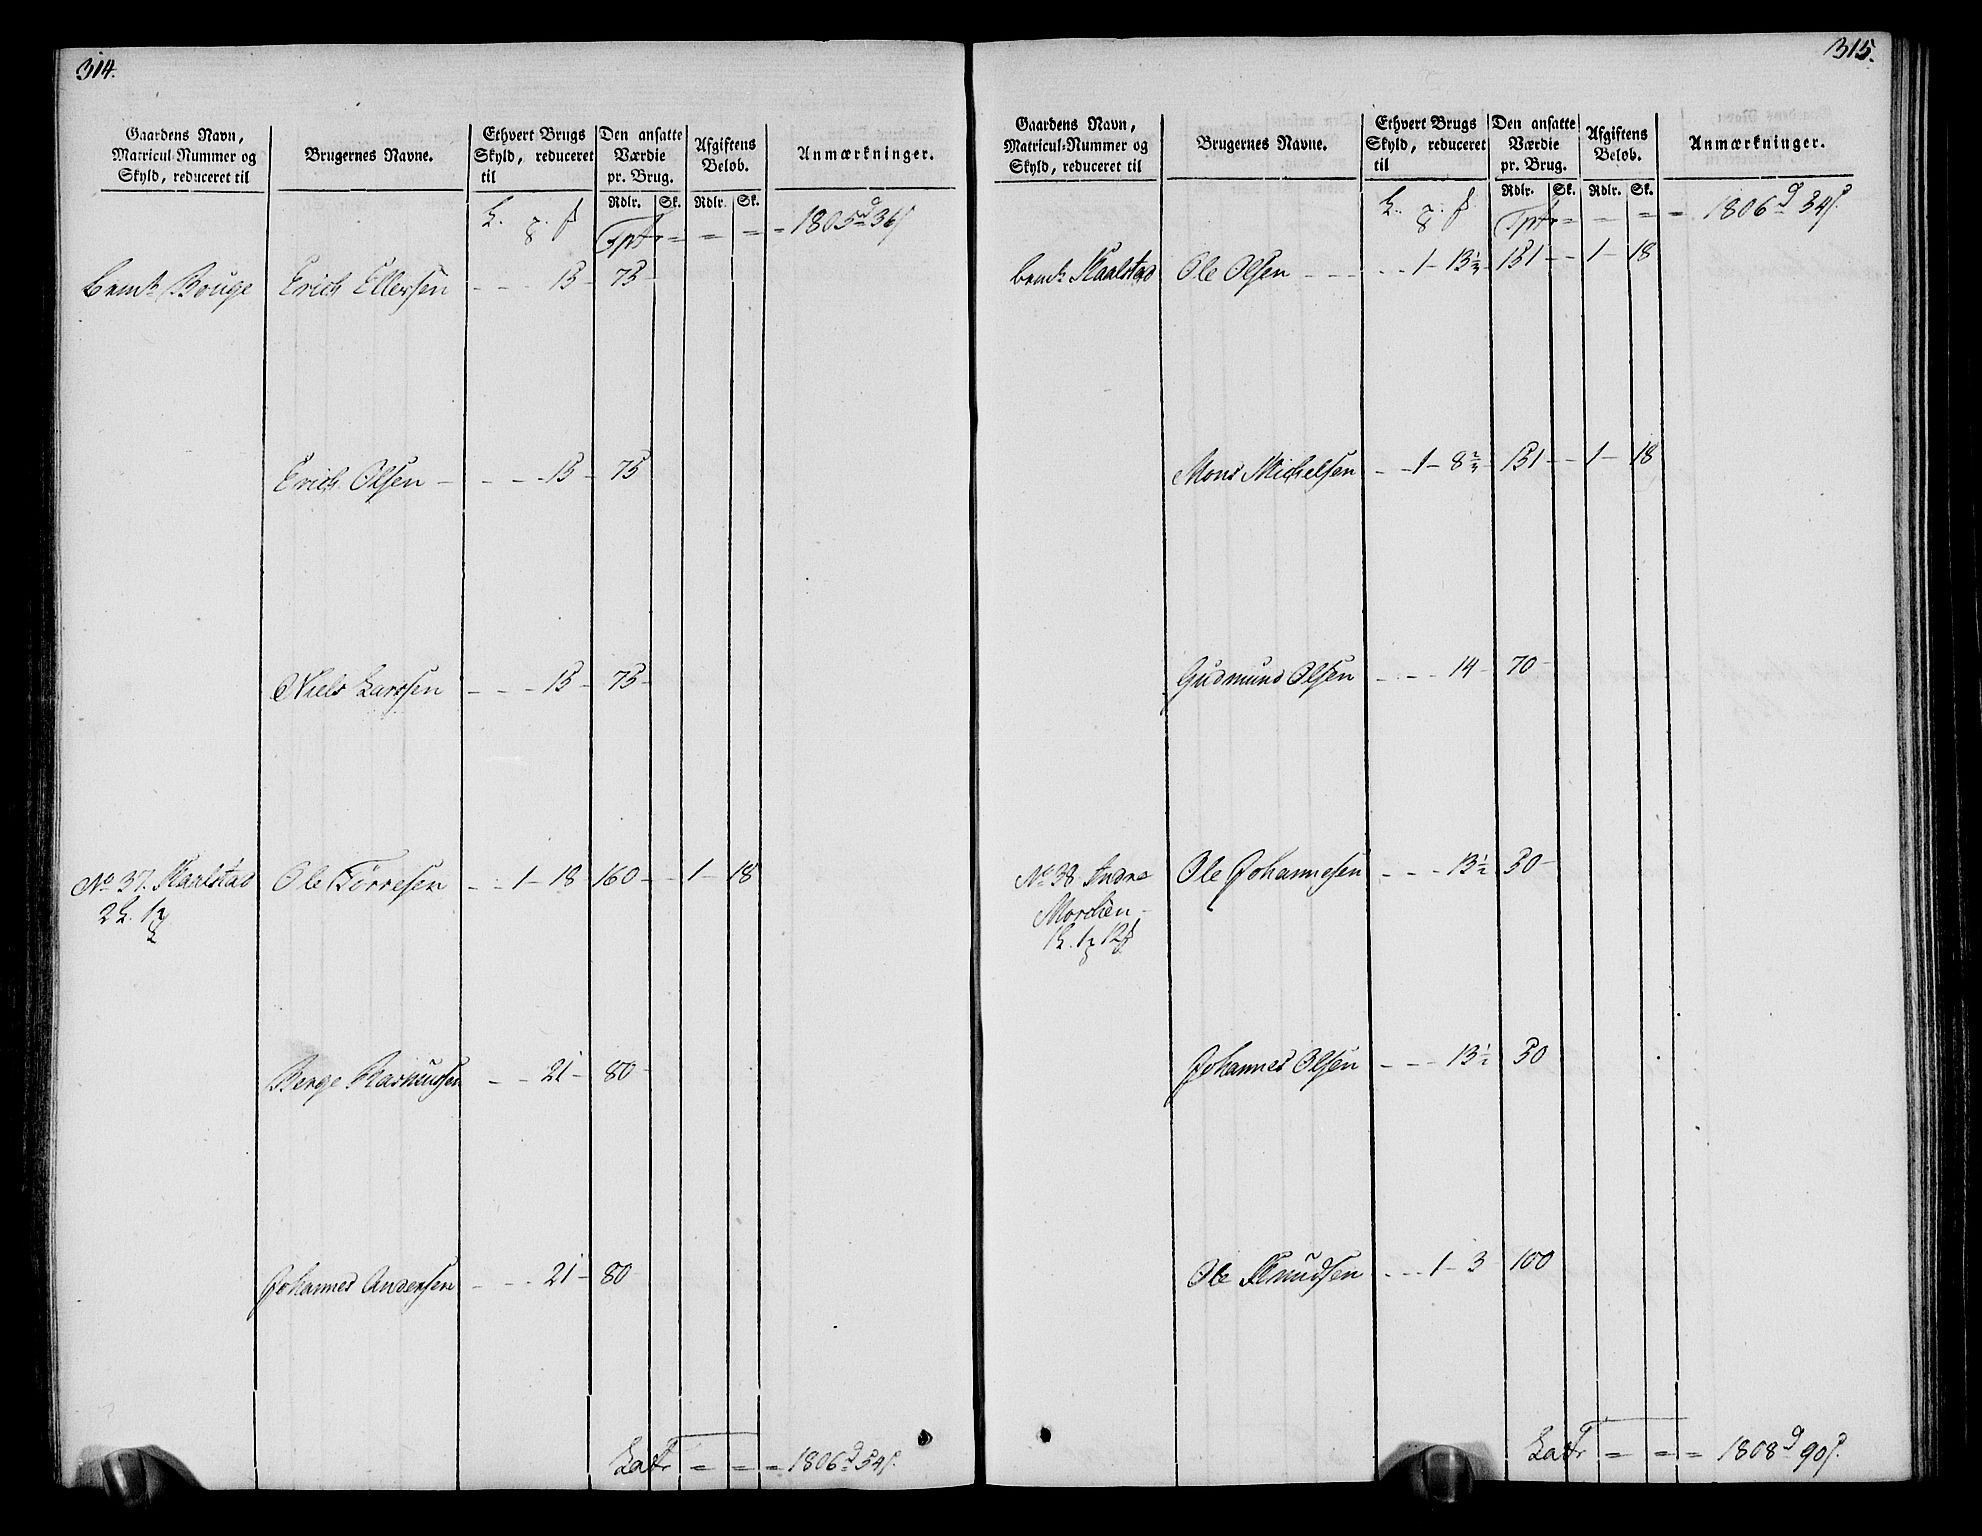 314.
Gaardens Navn, Matricul-Nummer og Skyld, reduceret til
Brugernes Navne.
Ethvert Brugs Skyld, reduceret til
Den ansatte Værdie pr. Brug.
Afgiftens Beløb.
Anmærkninger.
Rdlr. Sk. Rdlr. Sk.
Tptr = = = = 1805 d 36 s.
Bemt. Bouge Erich Ellersen - - - 15 - 75 -
Erich Olsen - - - - 15 - 75
Niels Larssen - - - 15 - 75 -
No 37. Kaarlstad Ole Törresen - - 1 - 18 160 - - 1 - 18
2 L. 1
Berge Rasmusen - - 21 - 80 -
Johannes Andersen - - - 21 - 80 -
Latr = = = 1806 d 54 s.
315.
Gaardens Navn, Matricul-Nummer og Skyld, reduceret til
Brugernes Navne.
Ethvert Brugs Skyld, reduceret til
Den ansatte Værdie pr. Brug.
Afgiftens Beløb.
Anmærkninger.
Rdlr. Sk. Rdlr. Sk.
Tptr = = = = 1806 d 54 s.
Bemt. Kaarlstad Ole Olsen - - - - - 1 - 13 ½ - 151 - - 1 - 18
Mons Michelsen - - 1 - 8 151 - - 1 - 18
Gudmund Olsen - - - - 14 - 70 -
No 38 Indre Ole Johannesen - - - 13 ½ 50 -
1 L. 1 12
Johannes Olsen - - - 13 ½ 50
Ole Knudsen - - - 1 - 3 100
Latr = = = 1808 d 90 s.